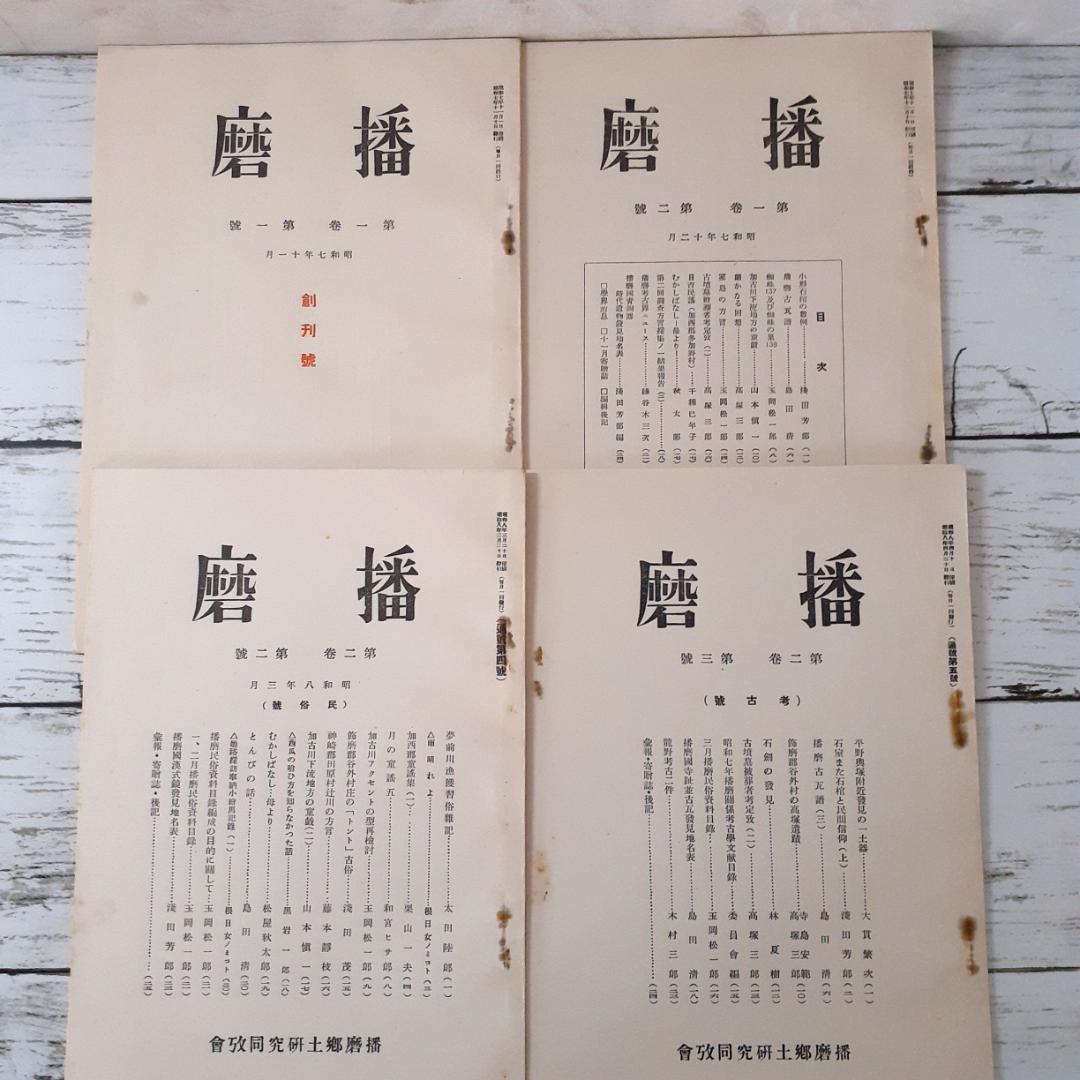 播磨
第一卷 第一號
昭和七年十一月
創刊號
播磨
第一卷 第二號
昭和七年十二月
目次
小形石棺の數例 淺田芳郎(一)
播磨古瓦譜 島田清(六)
蜘蛛137及び蜘蛛の巢138 玉岡松一郎(八)
加古川下流地方の童戲 山本愼一(一〇)
高塚三郎
室島の方言 玉岡松一郎
古墳墓被葬者考定攷(一) 高塚三郎
日吉民謠(加西郡多加野村) 千種巳年子
むかしばなし―母より― 秋太郎
第二回調査方言採集ノ一結果報告(二)
播磨考古界ニュース 鎌谷木三次
播磨國靑銅器時代遺物發見地名表 淺田芳郎編
□學界消息 □十一月寄贈誌 □編輯後記
播磨
第二卷 第二號
昭和八年三月
(民俗號)
(通號第四號)
夢前川漁獲習俗雜記 太田陸郎(一)
△雨晴れよ 根日女ノミコト(三)
加西郡童謠集(一) 栗山一夫(四)
月の童謠五 和宮ヒサ郎(八)
加古川アクセントの型再檢討 玉岡松一郎(九)
飾磨郡谷外村庄の「トント」古俗 淺田茂(一五)
神崎郡田原村辻川の方言 藤本靜枝(一六)
加古川下流地方の童戲(二) 山本愼一(一七)
△西瓜の拾ひ方を知らなかつた話 黑岩一郎(一八)
むかしばなし―母より 松屋秋太郎(一九)
とんびの話 島田淸(二〇)
△姬路探訪奉納小繪馬記錄(一) 根日女ノミコト(二〇)
播磨民俗資料目錄編成の目的に關して 玉岡松一郎(二一)
一、二月播磨民俗資料目錄 玉岡松一郎(二一)
播磨國漢式鏡發見地名表 淺田芳郎(二二)
彙報・寄贈誌・後記(二五)
播磨鄕土硏究同攷會
播磨
第二卷 第三號
(考古號)
(通號第五號)
平野輿塚附近發見の一土器 大貫繁次(一)
石室また石棺と民間信仰(上) 淺田芳郎(二)
播磨古瓦譜(三) 島田清(六)
飾磨郡谷外村の高塚遺蹟 寺島安範 高塚三郎(一〇)
石劍の發見 林夏樹(一二)
古墳墓被葬者考定攷(二) 高塚三郎(一三)
昭和七年播磨關係考古學文獻目錄 委員會編(一五)
三月播磨民俗資料目錄 玉岡松一郎(一六)
播磨國寺趾並古瓦發見地名表 島田清(一八)
龍野考古二件 木村三郎(二三)
彙報・寄贈誌・後記(二四)
播磨鄕土硏究同攷會